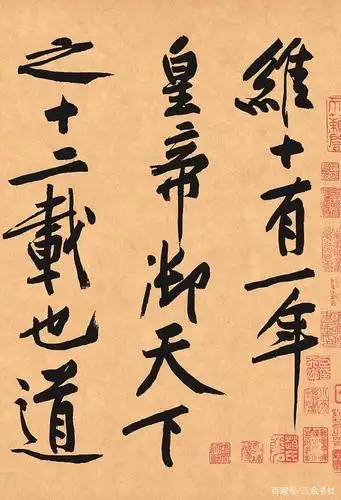 維十有一年
皇帝御天下
之十二載也道
百家号/三余书社